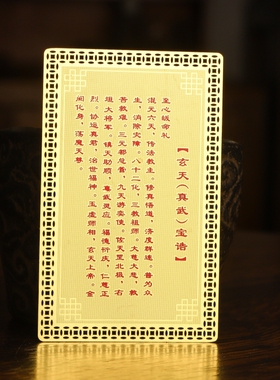 【玄天（真武）宝诰】
至心皈命礼
混元六天，传法教主。修真悟道，济度群迷。普为众
生，消除灾障。八十二化，三教祖师。大慈大悲，救
苦救难。三元都总管，九天游奕使。佐天罡北极，右
垣大将军。镇天助顺，真武灵应。福德衍庆，仁慈正
烈。协运真君，治世福神。玉虚师相，玄天上帝。金
阙化身，荡魔天尊。